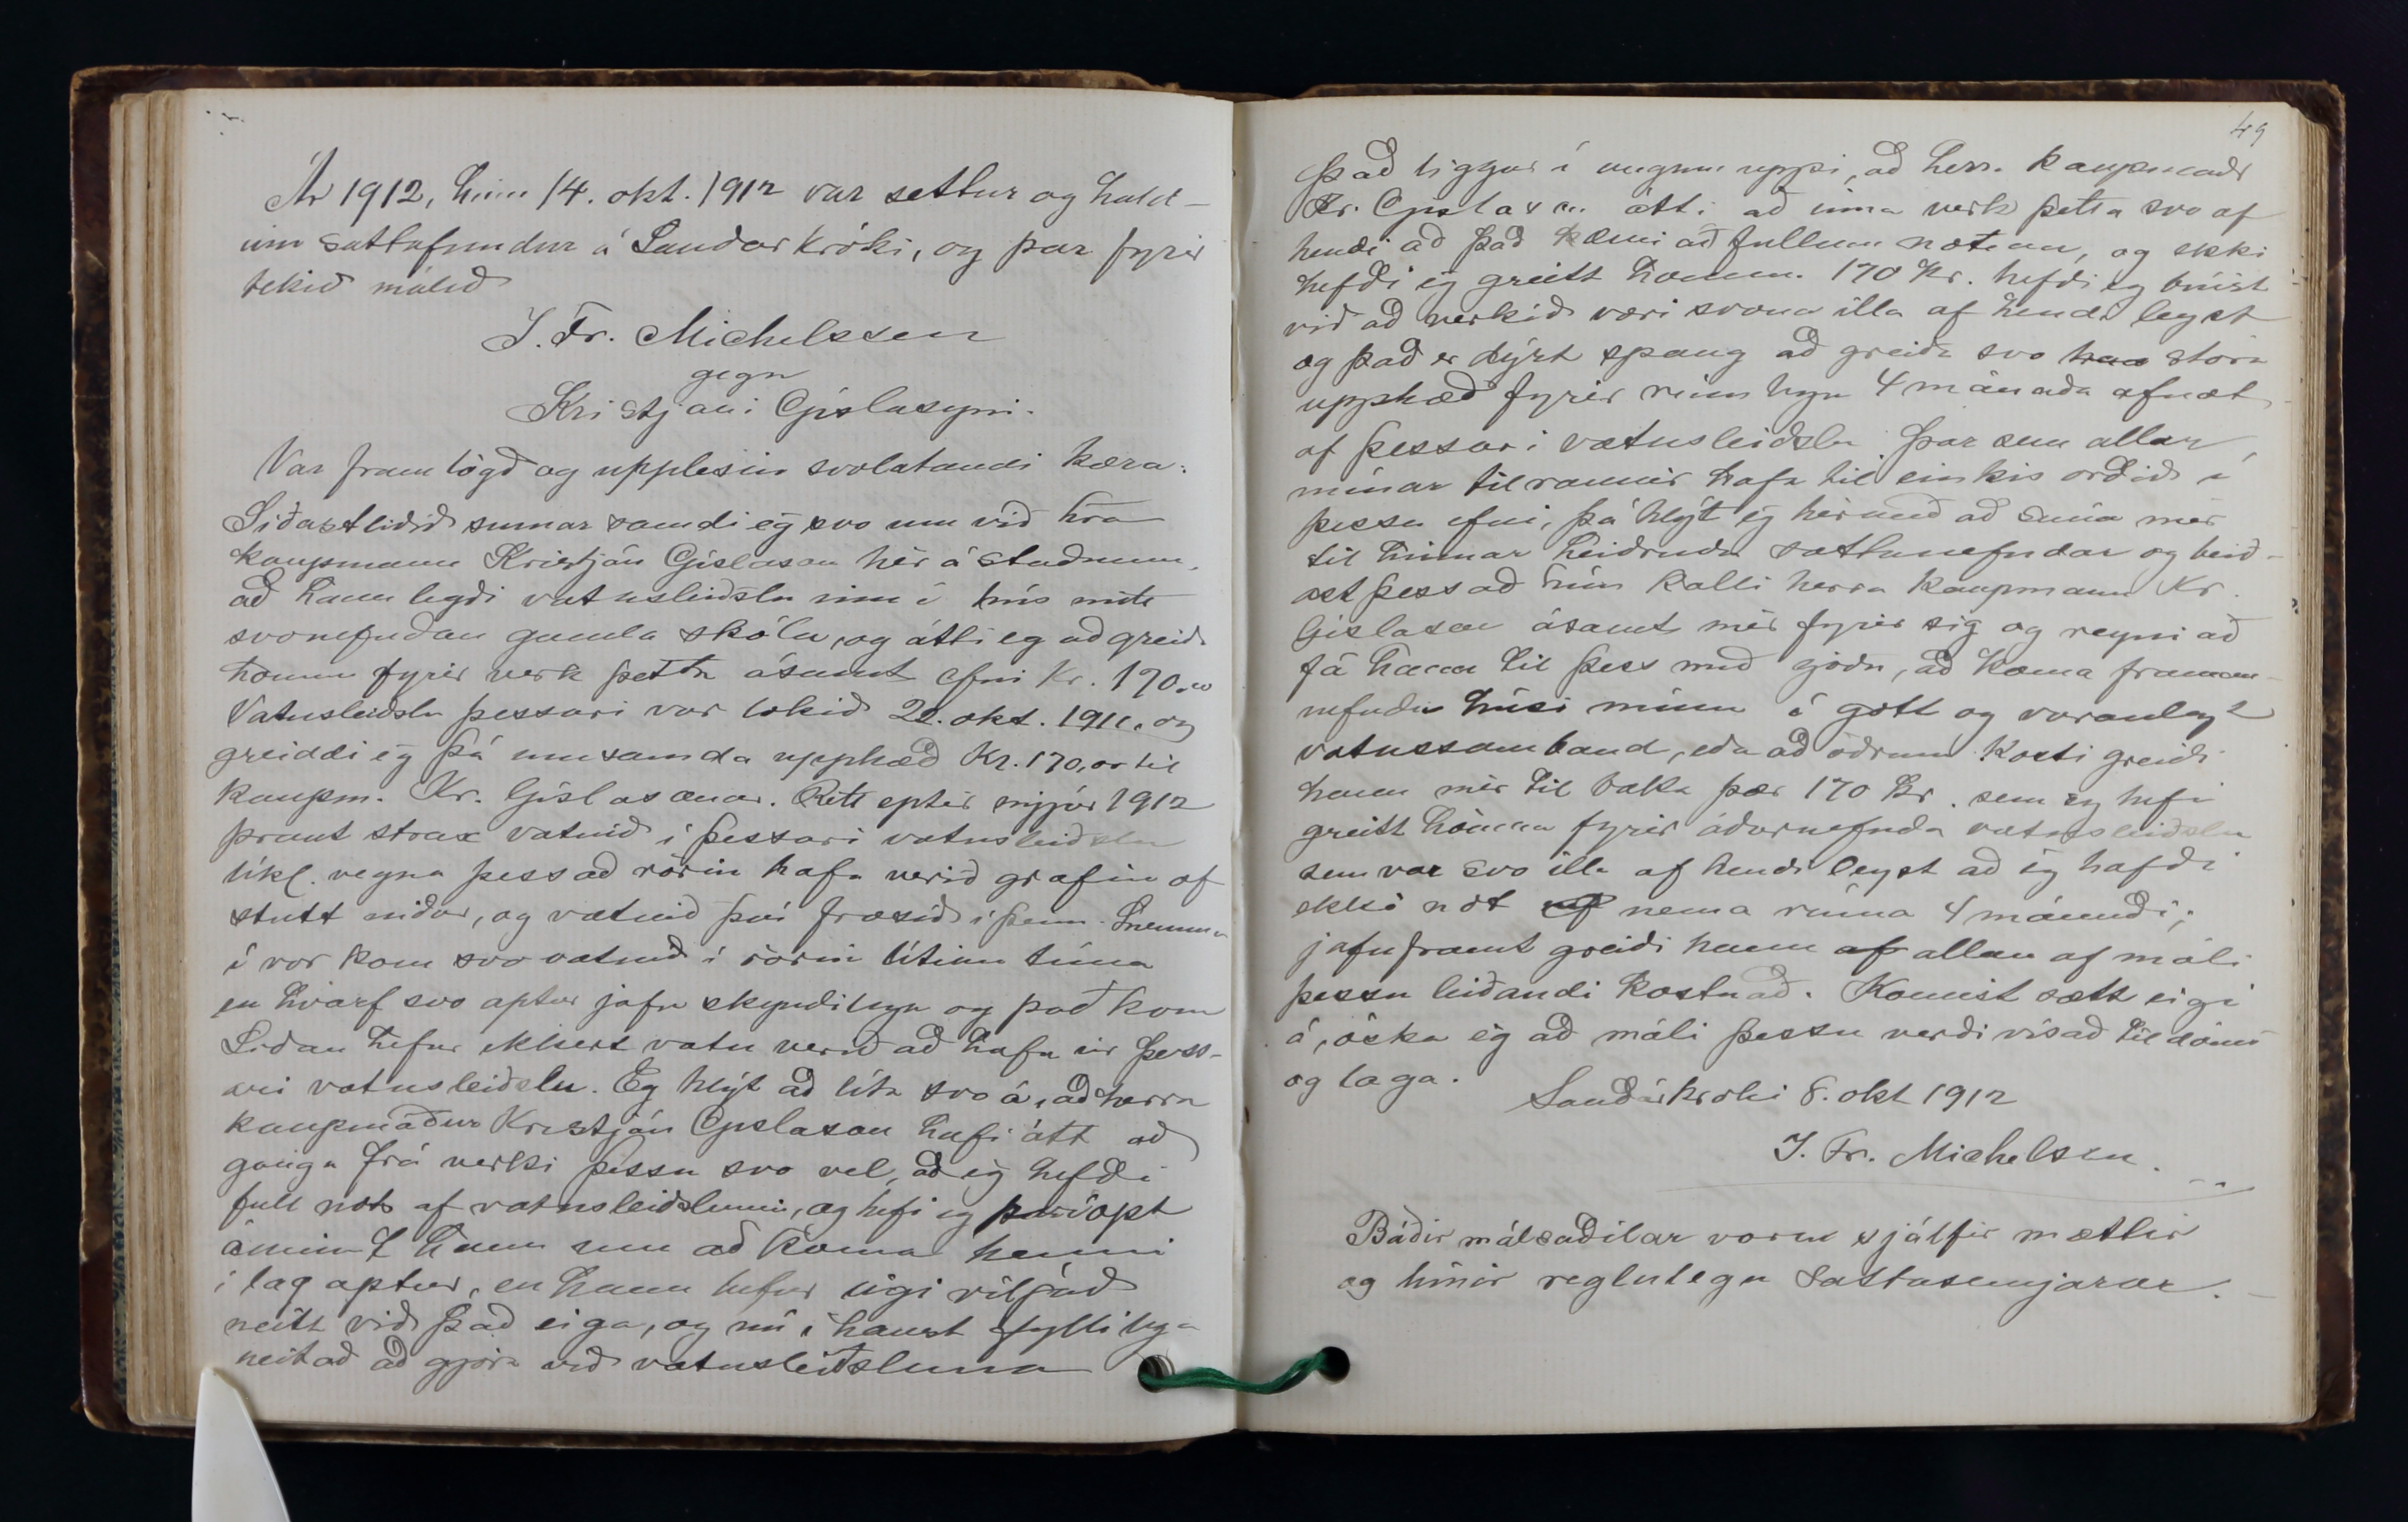 Ár 1912, hinn 14. okt. 1912 var settur og hald-
inn sáttafundur á Sauðárkróki, og þar fyrir
tekið málið
J. Fr. Michelssen
gegn
Kristjáni Gíslasyni.
Var fram lögð og upplesin svolátandi kæra:
Síðastliðið sumar samdi eg svo um við hra
kaupmann Kristján Gíslason hér á staðnum,
að hann legði vatnsleiðslu inn í hús mitt
svonefndan gamla skóla, og átti eg að greiða
honum fyrir verk þetta ásamt efni Kr. 170.00
Vatnsleiðslu þessari var lokið 22. okt. 1911. og
greiddi eg þá umsamda upphæð Kr. 170,00 til
kaupm. Kr. Gíslasonar. Rétt eptir nýjár 1912
þraut strax vatnið í þessari vatnsleiðslu
líkl. vegna þess að rörin hafa verið grafin of
stutt niður, og vatnið því frosið í þeim. Snemma
í vor kom svo vatnið í rörin lítinn tíma
en hvarf svo aptur jafn skyndilega og það kom
Síðan hefur ekkert vatn verið að hafa úr þess-
ari vatnsleiðslu. Eg hlýt að líta svo á, að herra
kaupmaður Kristján Gíslason hafi átt að
ganga frá verki þessu svo vel, að eg hefði
full not af vatnsleiðslunni, og hefi eg því opt
áminnt hann um að koma henni
í lag aptur, en hann hefur eigi viljað
neitt við það eiga, og nú í haust fyllilega
neitað að gjöra við vatnsleiðsluna
49
Það liggur í augum uppi, að herra kaupmaður
Kr. Gíslason átti að inna verk þetta svo af
hendi að það kæmi að fullum notum, og ekki
hefði eg greitt honum 170 Kr. hefði eg búist
við að verkið væri svona illa af hendi leyst
og það er dýrt spaug að greiða svo stóra
upphæð fyrir rúmlega 4 mánaða afnot
af þessari vatnsleiðslu. Þar sem allar
mínar tilraunir hafa til einkis orðið í
þessu efni, þá hlýt eg hérmeð að snúa mér
til hinnar heiðruðu sáttanefndar og beið-
ast þess að hún kalli herra kaupmann Kr.
Gíslason ásamt mér fyrir sig og reyni að
fá hann til þess með góðu, að koma framan-
nefndu húsi mínu í gott og varanlegt
vatnssamband, eða að öðrum kosti greiði
hann mér til baka þær 170 Kr. sem eg hefi
greitt honum fyrir áðurnefnda vatnsleiðslu
sem var svo illa af hendi leyst að eg hafði
ekki not af nema rúma 4 mánuði;
jafnframt greiði hann af allan af máli
þessu leiðandi kostnað. Komist sætt eigi
á, óska eg að máli þessu verði vísað til dóms
og laga.
Sauðárkróki 8. okt 1912
J. Fr. Michelsen.
Báðir málsaðilar voru sjálfir mættir
og hinir reglulegu sáttasemjarar.